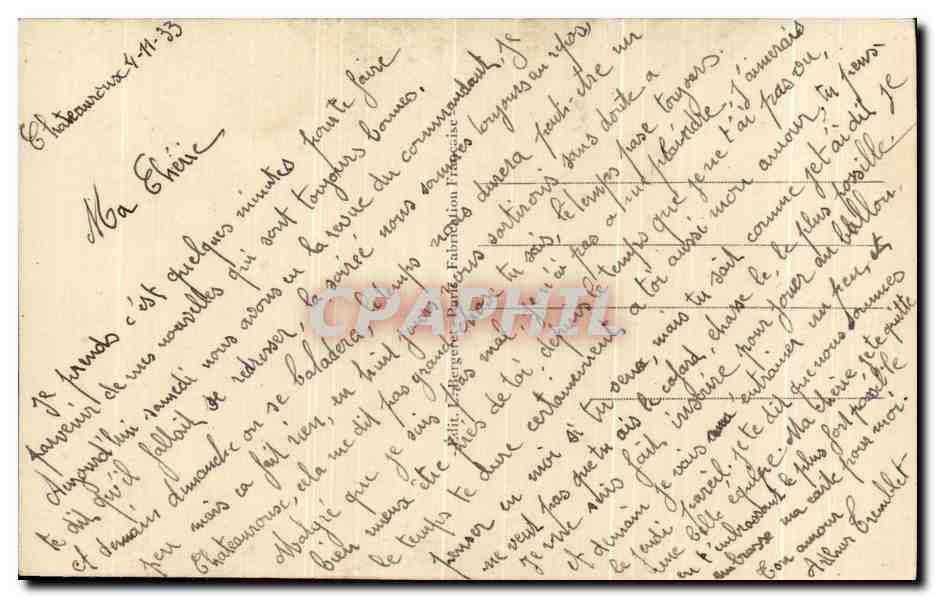 Chateauroux 4-11-33
Ma Chérie
Je prends c'est quelques minutes pour te faire
parvenir de mes nouvelles qui sont toujours bonnes.
Aujourd'hui samedi nous avons eu la revue du commandant, je
te dit qu'il fallait se redresser, la soirée nous sommes toujours en repos
et demain dimanche on se baladera, le temps nous durera peut-être un
peu mais ca fait rien, en huit jours nous sortirons sans doute a
Chateauroux, cela me dit pas grand chose tu sais, le temps passe toujours.
Malgré que je suis pas mal, je n'ai pas a me plaindre, j'aimerais
bien mieux être près de toi, depuis le temps que je ne t'ai pas vu,
le temps te dure certainement a toi aussi mon amour, tu peux
penser en moi si tu serai, mais tu sait comme je t'ai dit je
ne veut pas que tu ais le cafard, chasse le, le plus possible
Je me suis fait inscrire pour jouer au ballon.
et demain je vais m'entrainer un peu, et
le jeudi pareil. je te dit que nous sommes
une belle équipe. Ma chérie je te quitte
en t'embrassant le plus fort possible
embrasse ma carte pour moi.
Ton amour
Arthur Tremblet
Edit. L. Bergeret - Paris - Fabrication Française
CPAPHIL